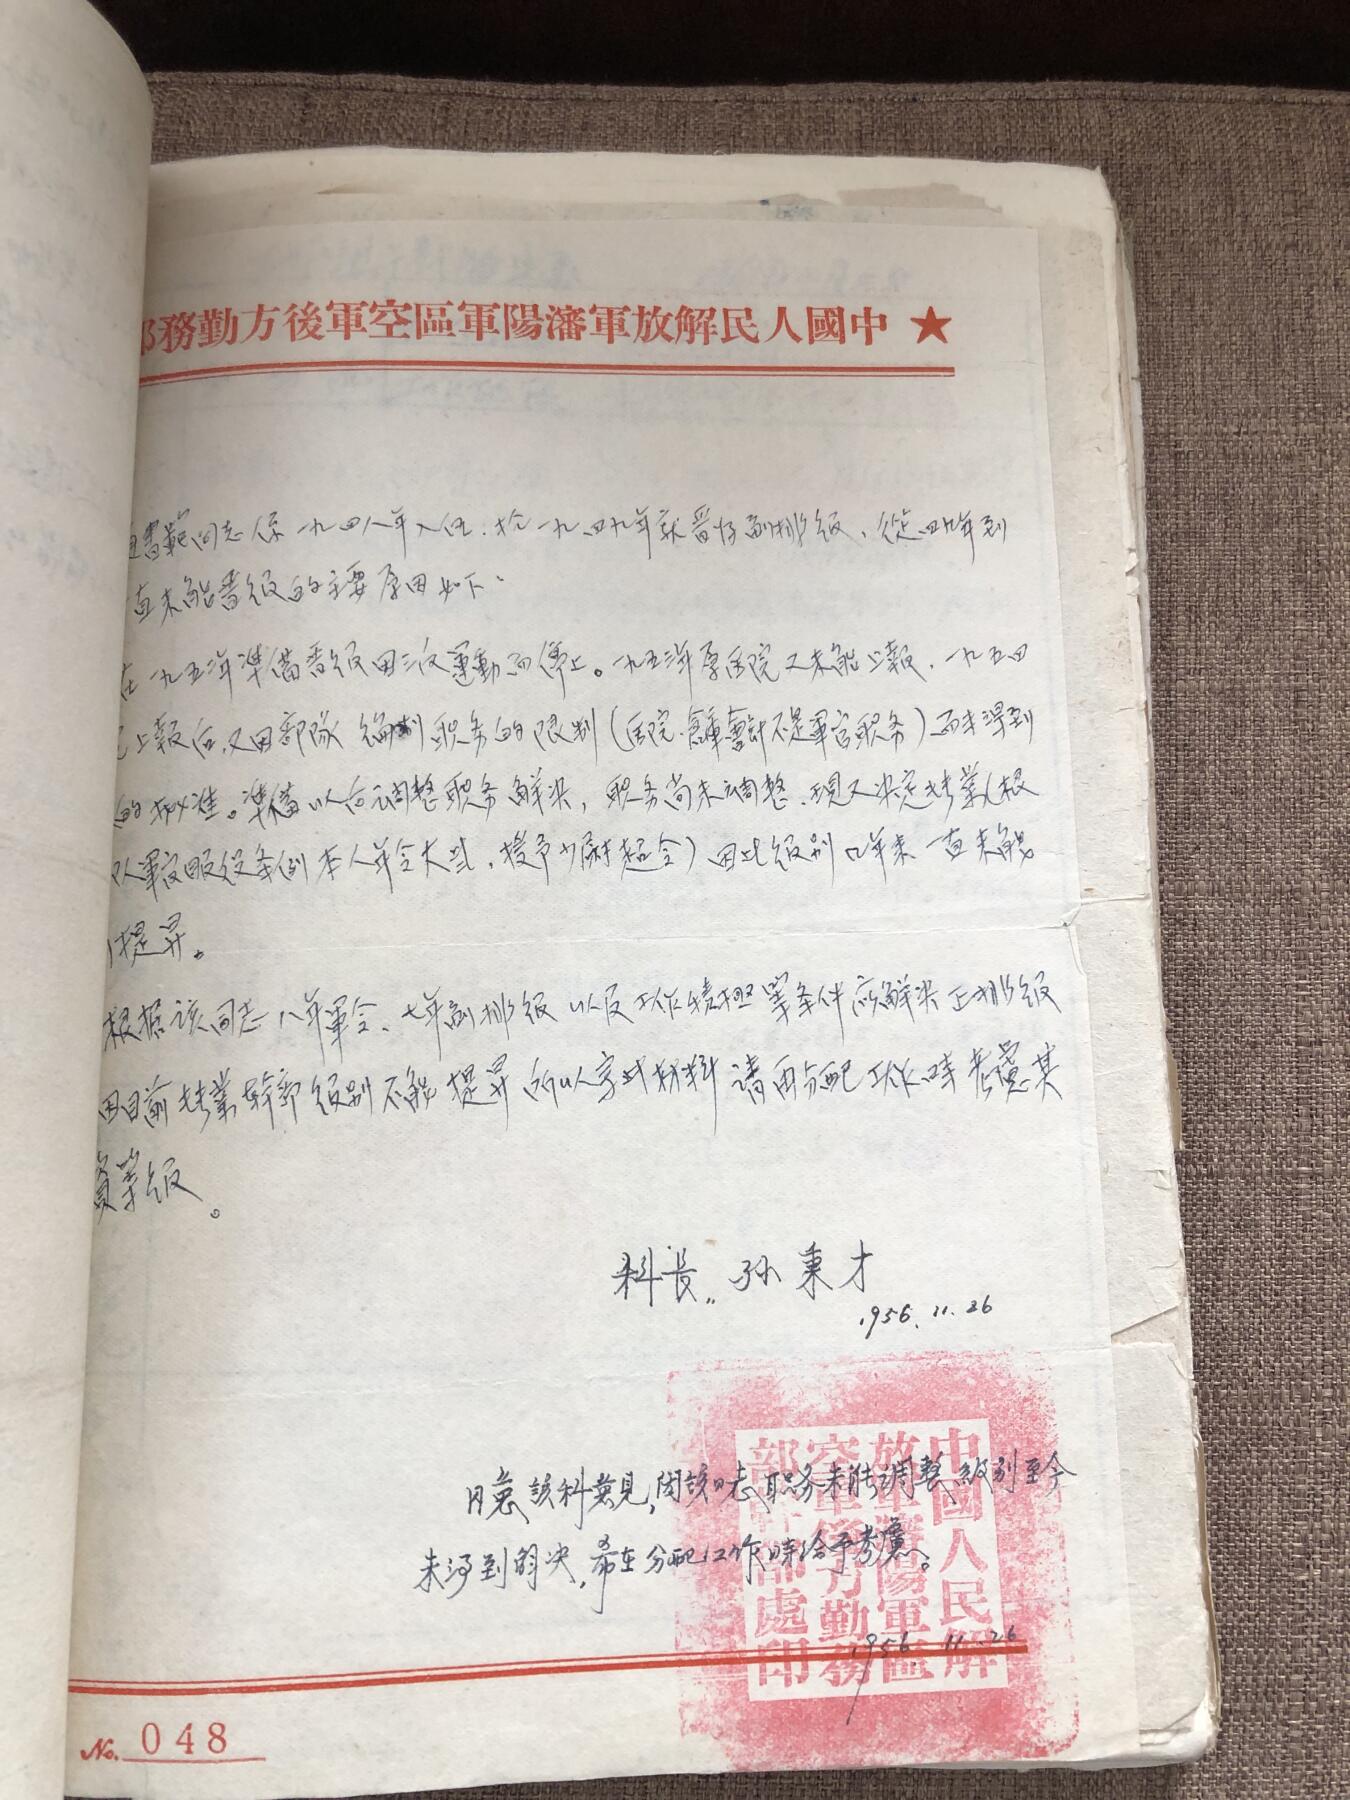 中國人民解放軍瀋陽軍區空軍後方勤務部
書範同志係一九四八年入伍.於一九四九年就晋好副排級,從四九年到
直未能晋級的主要原因如下:
在一九五二年準備晋級因三反運動而停止。一九五三年原医院又未能上報.一九五四
上報后,又因部隊編制职务的限制(医院.倉庫會計不是軍官职务)而未得到
的批准。準備以后調整职务解决,职务尚未調整.現又决定转業(根
軍官服役条例本人年令大些.授予少尉超令)因此級别几年来一直未能
提昇。
根据该同志八年軍令、七年副排级以及工作積極等条件应解决正排级
因目前转業幹部级别不能提昇所以字此材料請再分配工作時考慮其
資等级。
科長.. 孙秉才
1956.11.26
同意該科意見,因該同志职务未能調整級别至今
未得到解决,希在分配工作時給予考慮。
1956.11.26
中國人民解放軍瀋陽軍區空軍後方勤務部幹部處印
No. 048